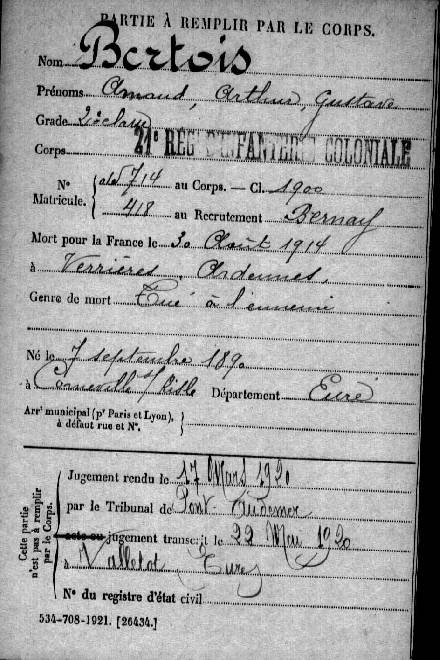 PARTIE À REMPLIR PAR LE CORPS.
Nom Bertois
Prénoms Amand, Arthur, Gustave
Grade 2e classe
Corps 21e RÉG. D'INFANTERIE COLONIALE
N° Matricule. 714 au Corps. — Cl. 1900
418 au Recrutement Bernay
Mort pour la France le 30 Août 1914
à Verrières, Ardennes,
Genre de mort Tué à l'ennemi
Né le 7 septembre 1890
à Corneville s/ Risle Département Eure
Arr' municipal (p' Paris et Lyon), à défaut rue et N°.
Cette partie n'est pas à remplir par le Corps.
Jugement rendu le 17 Mars 1920
par le Tribunal de Pont-Audemer
acte ou jugement transcrit le 22 Mai 1920
à Valletot (Eure)
N° du registre d'état civil
534-708-1921. [26434.]